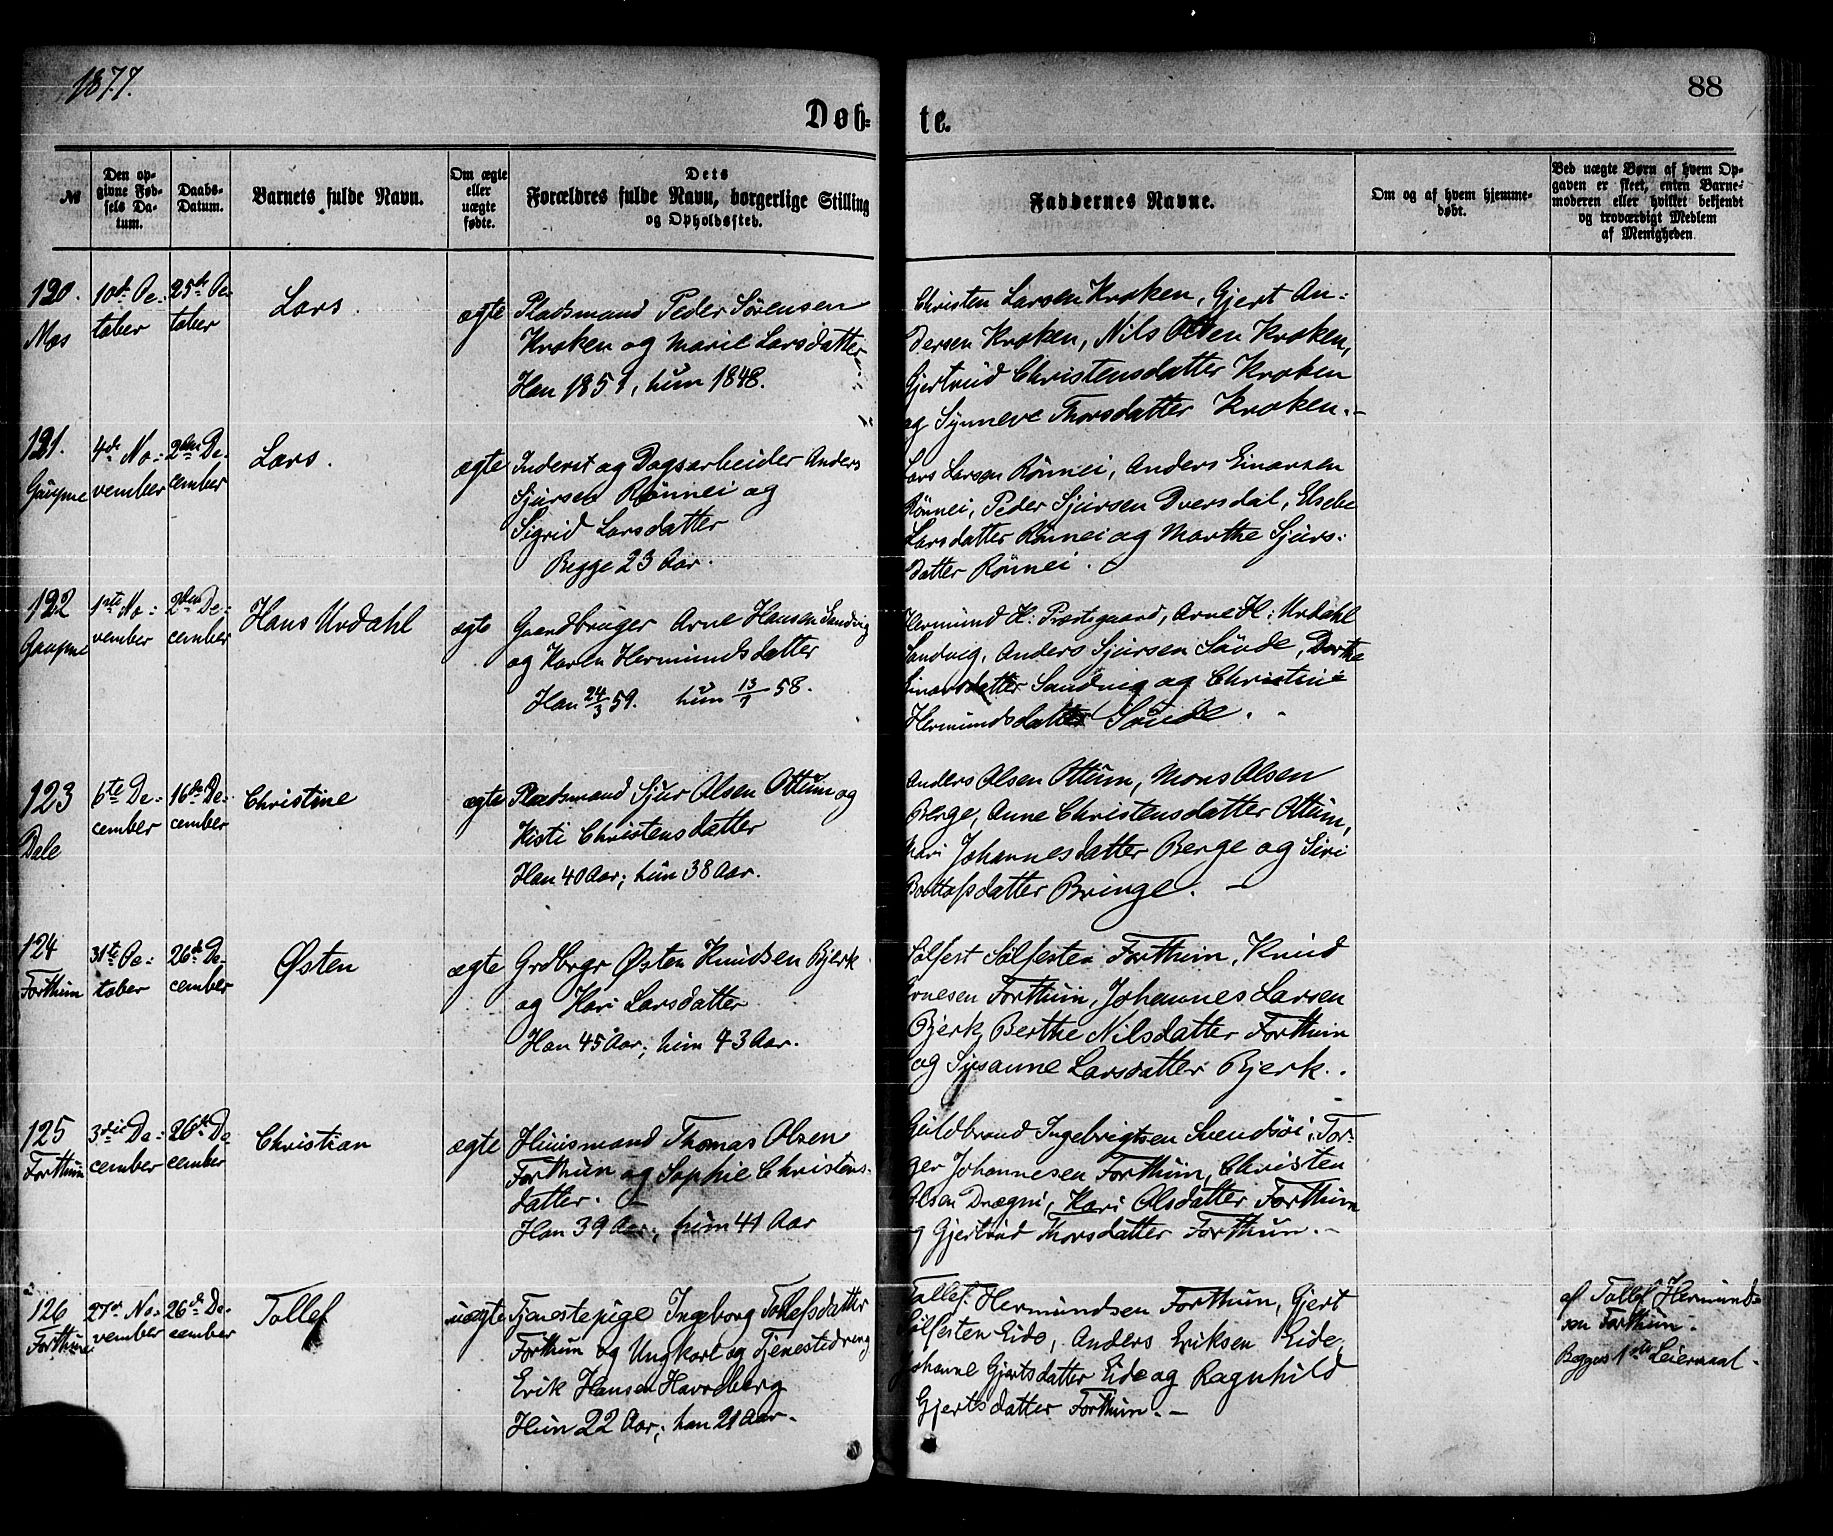 1877.
88
Døb-
te.
№
Den op-
givne Fød-
sels Da-
tum.
Daabs-
Datum.
Barnets fulde Navn.
Om ægte
eller
uægte
fødte.
Dets
Forældres fulde Navn, borgerlige Stilling
og Opholdssted.
Faddernes Navne.
Om og af hvem hjemme-
døbt.
Ved uægte Børn af hvem Op-
gaven er skeet, enten Barne-
moderen eller hvilket bekjendt
og troværdigt Medlem
af Menigheden.
120.
Mos
10de Oc-
tober
25de Oc-
tober
Lars.
ægte
Pladsmand Peder Sørensen
Kroken og Marie Larsdatter
Han 1851, hun 1848.
Christen Larsen Kroken, Gjert An-
dersen Kroken, Nils Olsen Kroken,
Gjertrud Christensdatter Kroken
og Synneve Thorsdatter Kroken.-
121.
Gaupne
4de No-
vember
2den De-
cember
Lars.
ægte
Inderst og Dagsarbeider Anders
Sjursen Rønnei og
Sigrid Larsdatter
Begge 23 Aar.
Lars Larsen Rønnei, Anders Einarsen
Rønnei, Peder Sjursen Dversdal, Elsebe
Larsdatter Rønnei og Marthe Sjurs-
datter Rønnei.
122
Gaupne
1ste No-
vember
2den De-
cember
Hans Urdahl
ægte
Gaardbruger Arne Hansen Sandvig
og Karen Hermundsdatter
Han 24/3 59. hun 13/9 58.
Hermund H: Præstegaard, Arne H: Urdahl
Sandvig, Anders Sjursen Søvde, Dorthe
Einarsdatter Sandvig og Christine
Hermundsdatter Søvde.-
123
Dale
6te De-
cember
16de De-
cember
Christine
ægte
Pladsmand Sjur Olsen Ottum og
Kisti Christensdatter
Han 40 Aar; hun 38 Aar.
Anders Olsen Ottum, Mons Olsen
Berge, Anne Christensdatter Ottum,
Mari Johannesdatter Berge og Siri
Bottolfsdatter Bringe.-
124
Forthun
31te Oc-
tober
26de De-
cember
Østen
ægte
Grdbrgr Østen Knudsen Bjerk
og Kari Larsdatter
Han 45 Aar; hun 43 Aar.
Sølfest Sølfesten Forthun, Knud
Arnesen Forthun, Johannes Larsen
Bjerk, Berthe Nilsdatter Forthun
og Susanne Larsdatter Bjerk.
125
Forthun
3die De-
cember
26de De-
cember
Christian
ægte
Huusmand Thomas Olsen
Forthun og Sophie Christens-
datter.
Han 39 Aar; hun 41 Aar
Guldbrand Ingebrigtsen Svendsøi, Tor-
ger Johannesen Forthun, Christen
Olsen Drægni, Kari Olsdatter Forthun
og Gjertrud Thorsdatter Forthun.-
126
Forthun
27de No-
vember
26de De-
cember
Tollef
uægte
Tjenestepige Ingeborg Tollefsdatter
Forthun og Ungkarl og Tjenestedreng
Erik Hansen Havrdberg
Hun 22 Aar; han 21 Aar.
Tollef Hermundsen Forthun, Gjert
Sølfesten Eide, Anders Eriksen Eide,
Johanne Gjertsdatter Eide og Ragnhild
Gjertsdatter Forthun.-
af Tollef Hermund-
sen Forthun.
Begges 1ste Leiermaal.